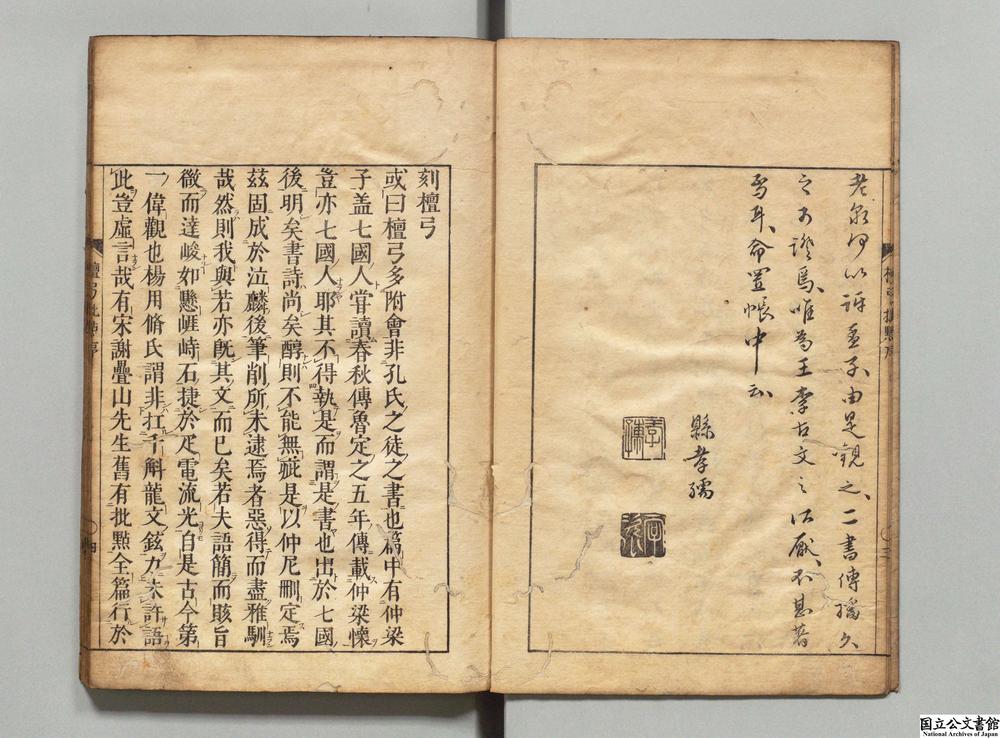 老泉何以評孟子由是觀之二書傳播久
之可證焉唯為王李古文之所厭不甚著
焉耳命置帳中云
縣孝孺
刻檀弓
或曰檀弓多附會非孔氏之徒之書也篇中有仲梁
子盖七國人甞讀春秋傳魯定之五年傳載仲梁懷
豈亦七國人耶其不得執是而謂是書也出於七國
後明矣書詩尚矣醇則不能無疵是以仲尼刪定焉
茲固成於泣麟後筆削所未逮焉者惡得而盡雅馴
哉然則我與若亦旣其文而已矣若夫語簡而賅旨
微而達峻如懸崕峙石捷於疋電流光自是古今第
一偉觀也楊用脩氏謂非扛千斛龍文鉉力未許語
此豈虛言哉有宋謝疊山先生舊有批㸃全篇行於
国立公文書館
National Archives of Japan